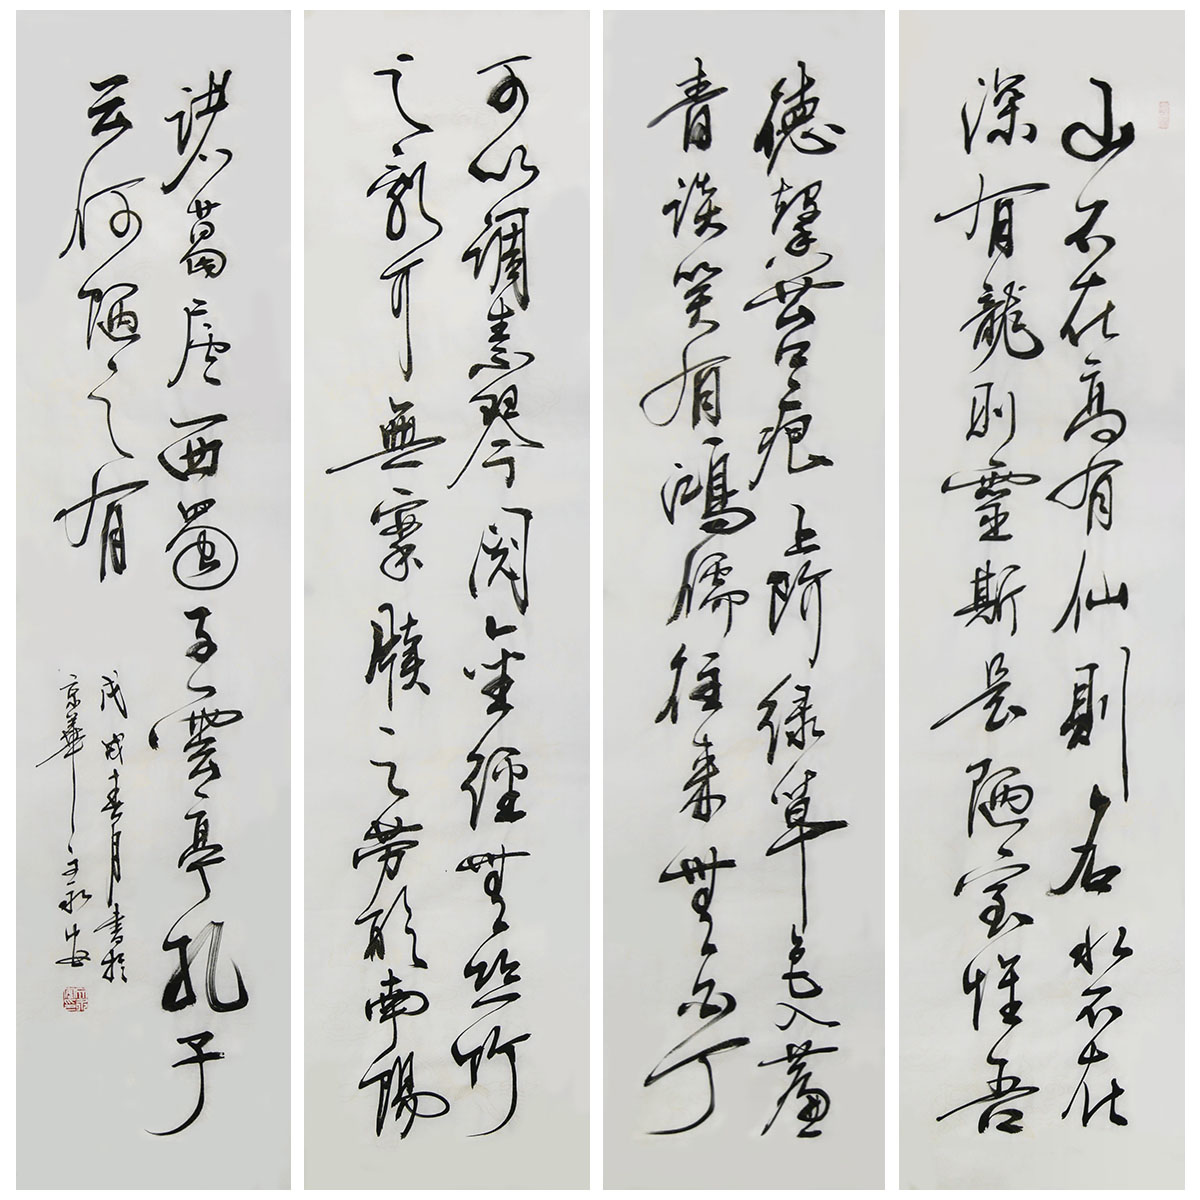 山不在高有仙則名水不在
深有龍則靈斯是陋室惟吾
德馨苔痕上階绿草色入簾
青談笑有鴻儒往来無白丁
可以調素琴閱金經無丝竹
之亂耳無案牘之劳形南陽
諸葛廬西蜀子雲亭孔子
云何陋之有
戊戌春月書於
京華